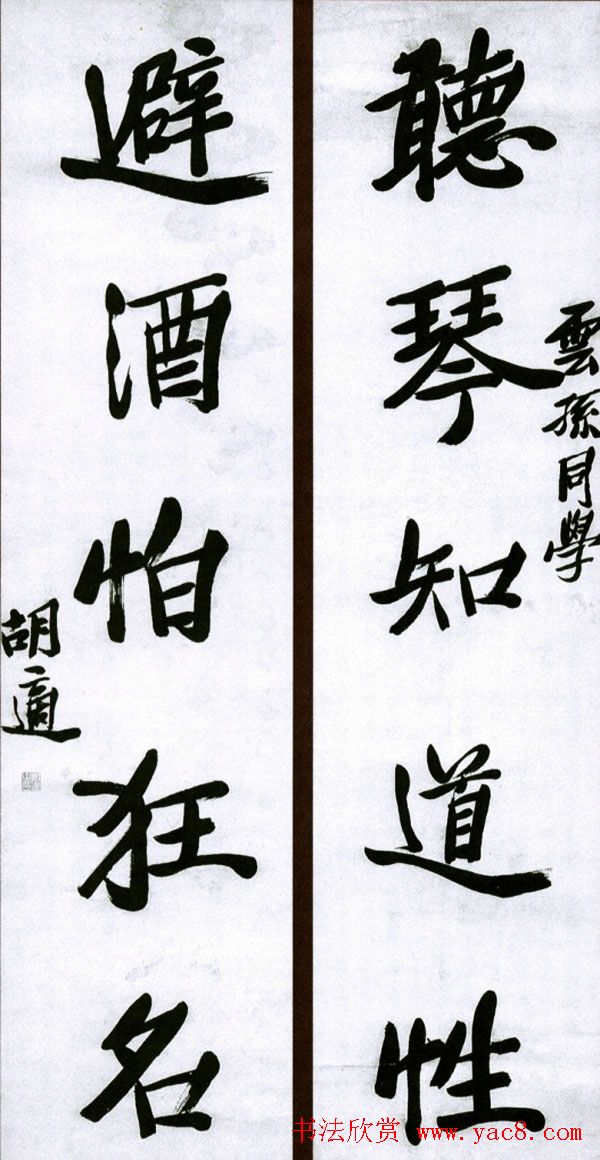 雲孫同學
聽琴知道性
避酒怕狂名
胡適
书法欣赏 www.yac8.com